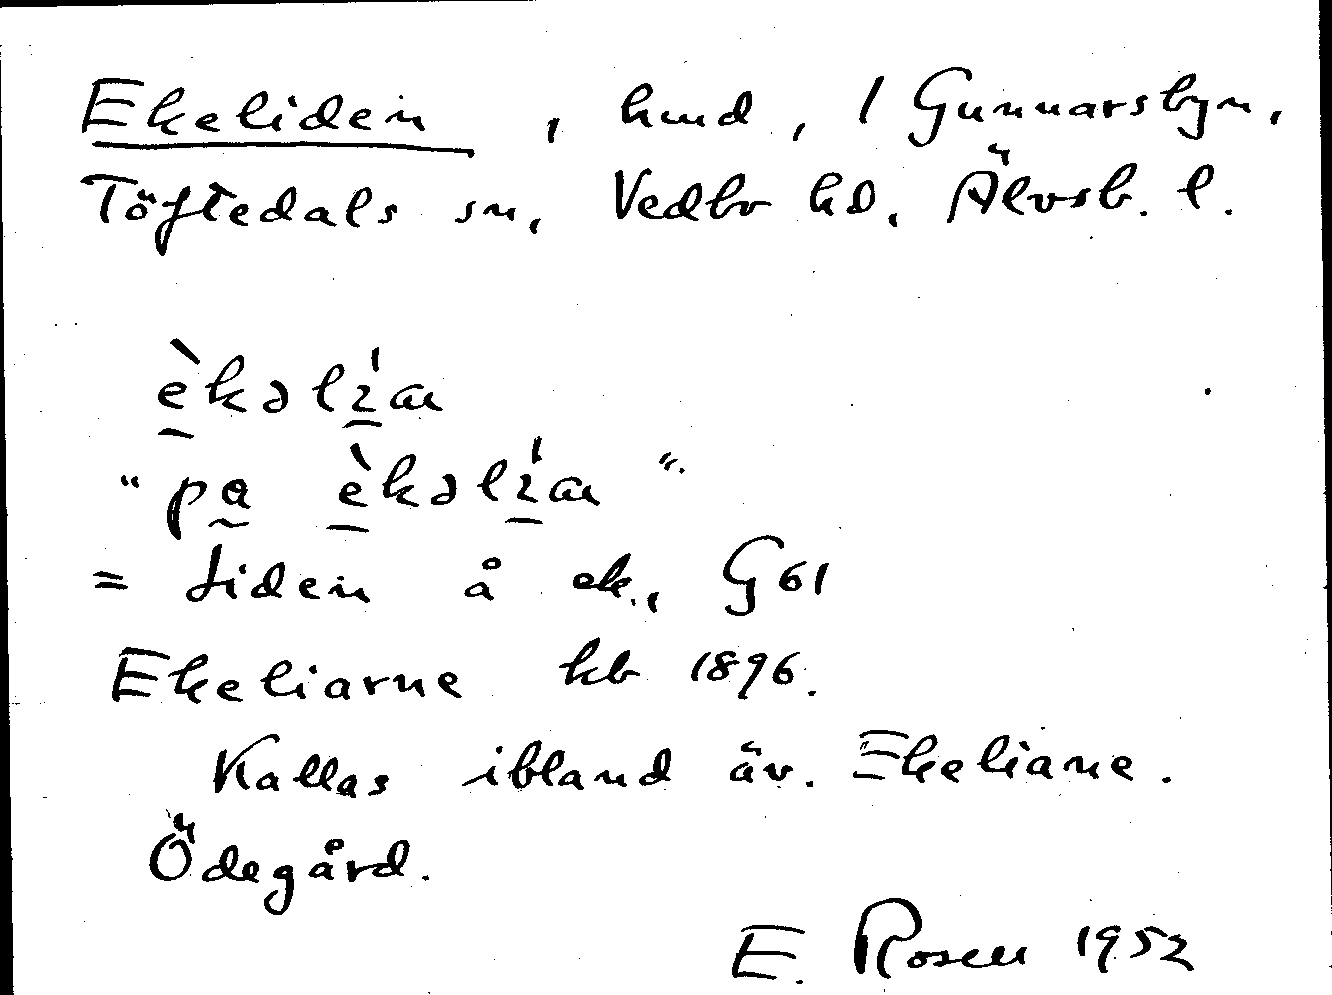 Ekeliden, hmd, 1 Gunnarsbyn,
Töftedals sn, Vedbo hd, Älvsb. l.
èkəlı̍an
"pa èkəlı̍an".
= liden å ek., G 61
Ekeliarne kb 1896.
Kallas ibland äv. Ekeliane.
Ödegård.
E. Rosen 1952